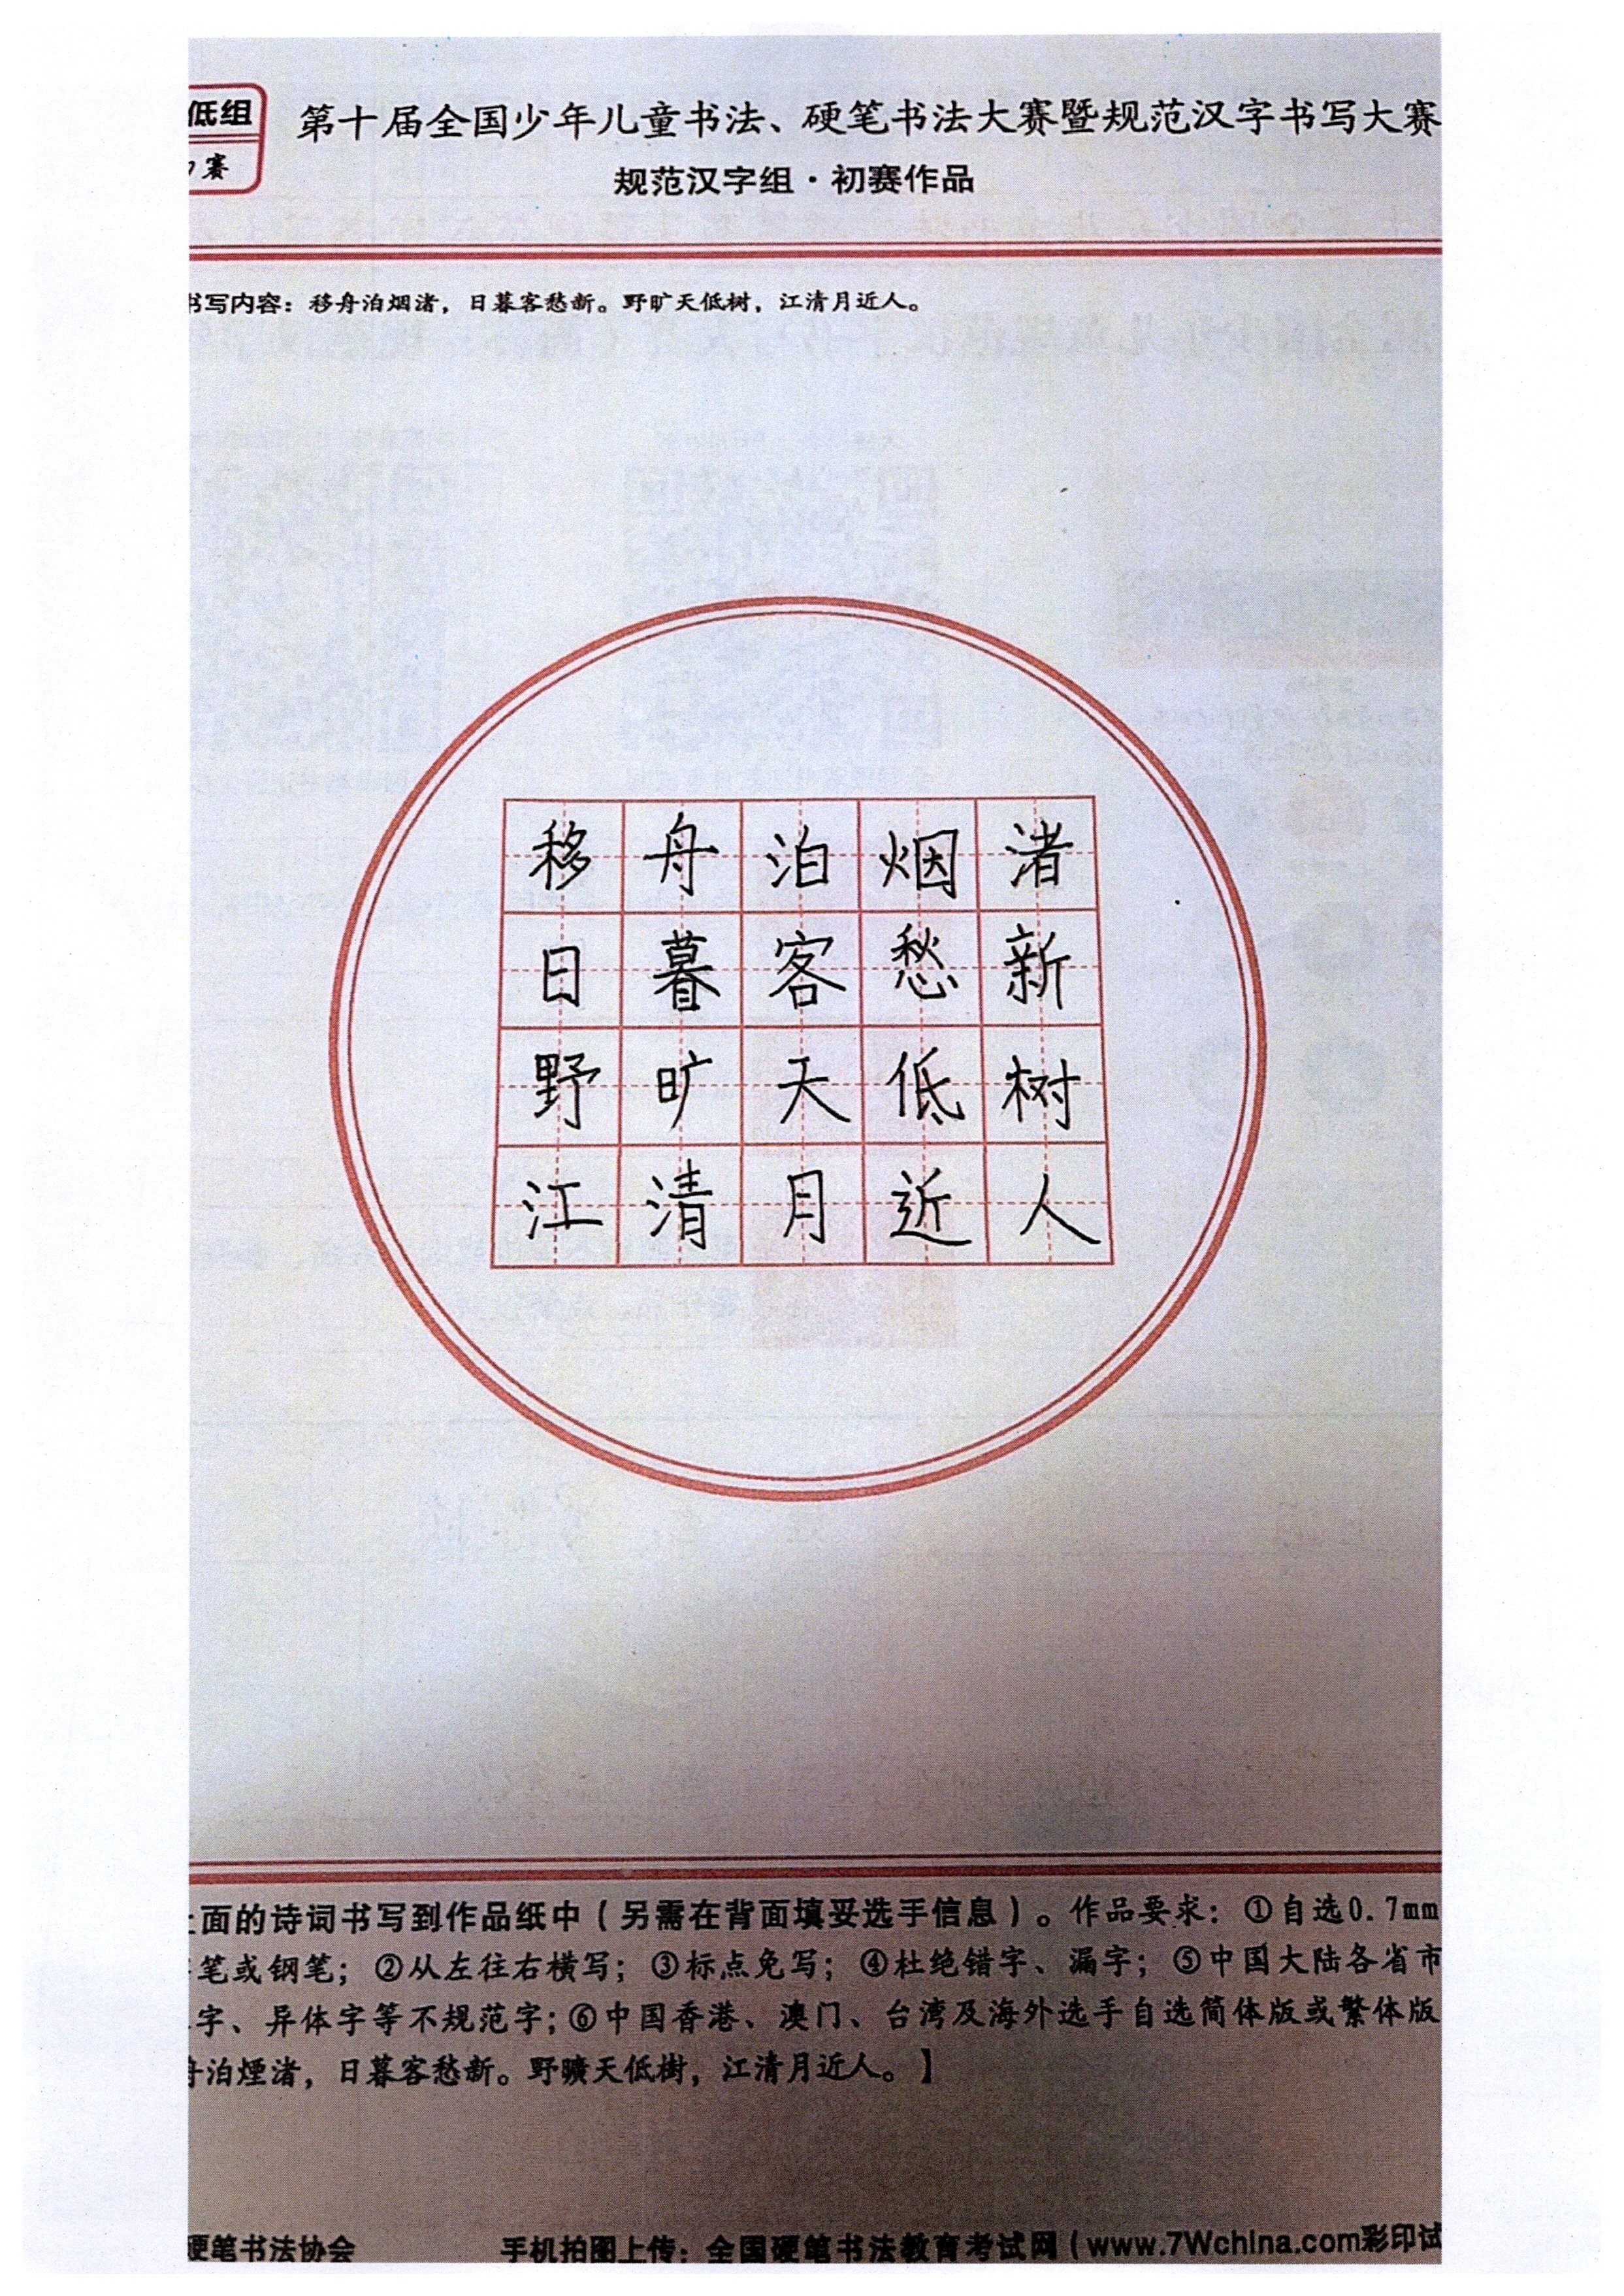 低组
赛
第十届全国少年儿童书法、硬笔书法大赛暨规范汉字书写大赛
规范汉字组·初赛作品
书写内容：移舟泊烟渚，日暮客愁新。野旷天低树，江清月近人。
移舟泊烟渚
日暮客愁新
野旷天低树
江清月近人
上面的诗词书写到作品纸中（另需在背面填妥选手信息）。作品要求：①自选0.7mm
笔或钢笔；②从左往右横写；③标点免写；④杜绝错字、漏字；⑤中国大陆各省市
字、异体字等不规范字；⑥中国香港、澳门、台湾及海外选手自选简体版或繁体版
舟泊煙渚，日暮客愁新。野曠天低樹，江清月近人。】
硬笔书法协会 手机拍图上传：全国硬笔书法教育考试网（www.7Wchina.com彩印试